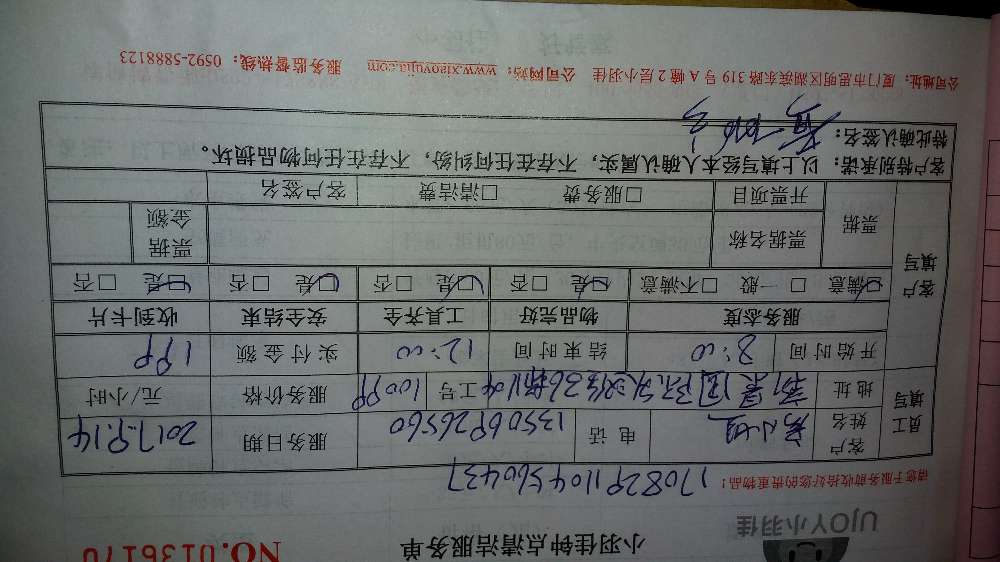 UJOY小羽佳
小羽佳钟点清洁服务单
NO.0136170
请您于服务前收拾好您的贵重物品！
170829110456 0437
员工填写
客户姓名 小姐 电话 13506926560 服务日期 2017.9.14
地址 工号 服务价格 元/小时
开始时间 8:00 结束时间 12:00 实付金额
客户填写
服务态度 物品完好 工具齐全 安全结束 收到卡片
☑满意 □一般 □不满意 ☑是 □否 ☑是 □否 ☑是 □否 ☑是 □否
票据 票据名称 票据金额
开票项目 □服务费 □清洁费 客户签名
客户特别承诺：以上填写经本人确认属实，不存在任何纠纷，不存在任何物品损坏。
特此确认签名：
公司地址：厦门市思明区湖滨东路319号A幢2层小羽佳 公司网站：www.xiaoyujia.com 服务监督热线：0592-5888123